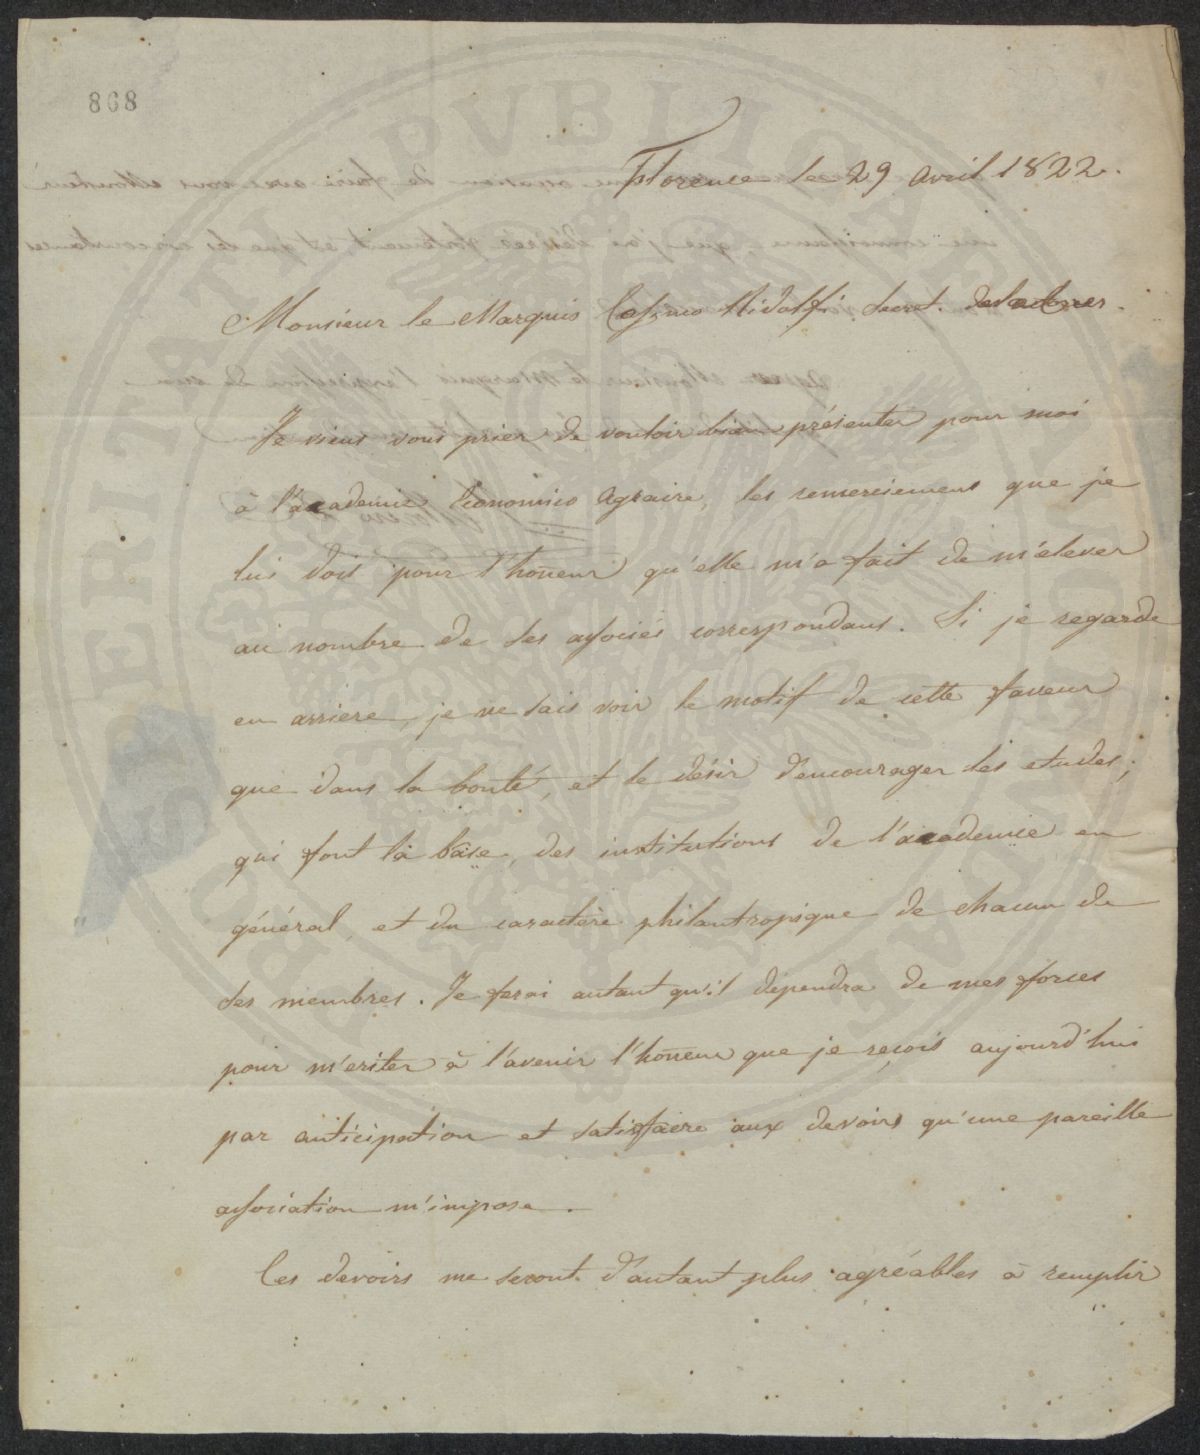 868
PROSPERITATI PVBLICAE AVGENDAE
Florence le 29 Avril 1822.
Monsieur le Marquis Cosimo Ridolfi Secret. des
Je viens vous prier de vouloir bien présenter pour moi
à l'academie Economico Agraire, les remerciemens que je
lui dois pour l'honeur qu'elle m'a fait de m'elever
au nombre de ses associés correspondans. Si je regarde
en arriere, je ne sais voir le motif de cette faveur
que dans la bonté, et le désir d'encourager les etudes;
qui font la base, des institutions de l'academie en
général, et du caractère philantropique de chacun de
ses membres. Je ferai autant qu'il dependra de mes forces
pour m'eriter à l'avenir l'honeur que je reçois aujourd'hui
par anticipation et satisfaire aux devoirs qu'une pareille
association m'impose.
Ces devoirs me seront d'autant plus agréables à remplir